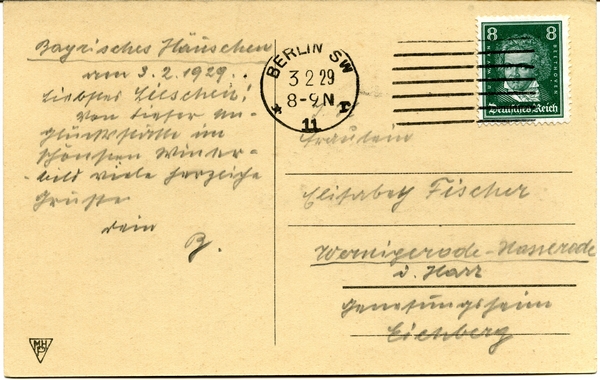 Bayrisches Häuschen
am 3.2.1929.
Liebstes Lieschen!
Von dieser Un-
glücksstätte im
schönsten Winter-
bild viele herzliche
Grüsse
Dein
B.
BERLIN SW
3 2 29
8-9 N
11
8 8
BEETHOVEN
Deutsches Reich
Fräulein
Elisabeth Fischer
Wernigerode-Hasserode
i. Harz
Genesungsheim
Eichberg